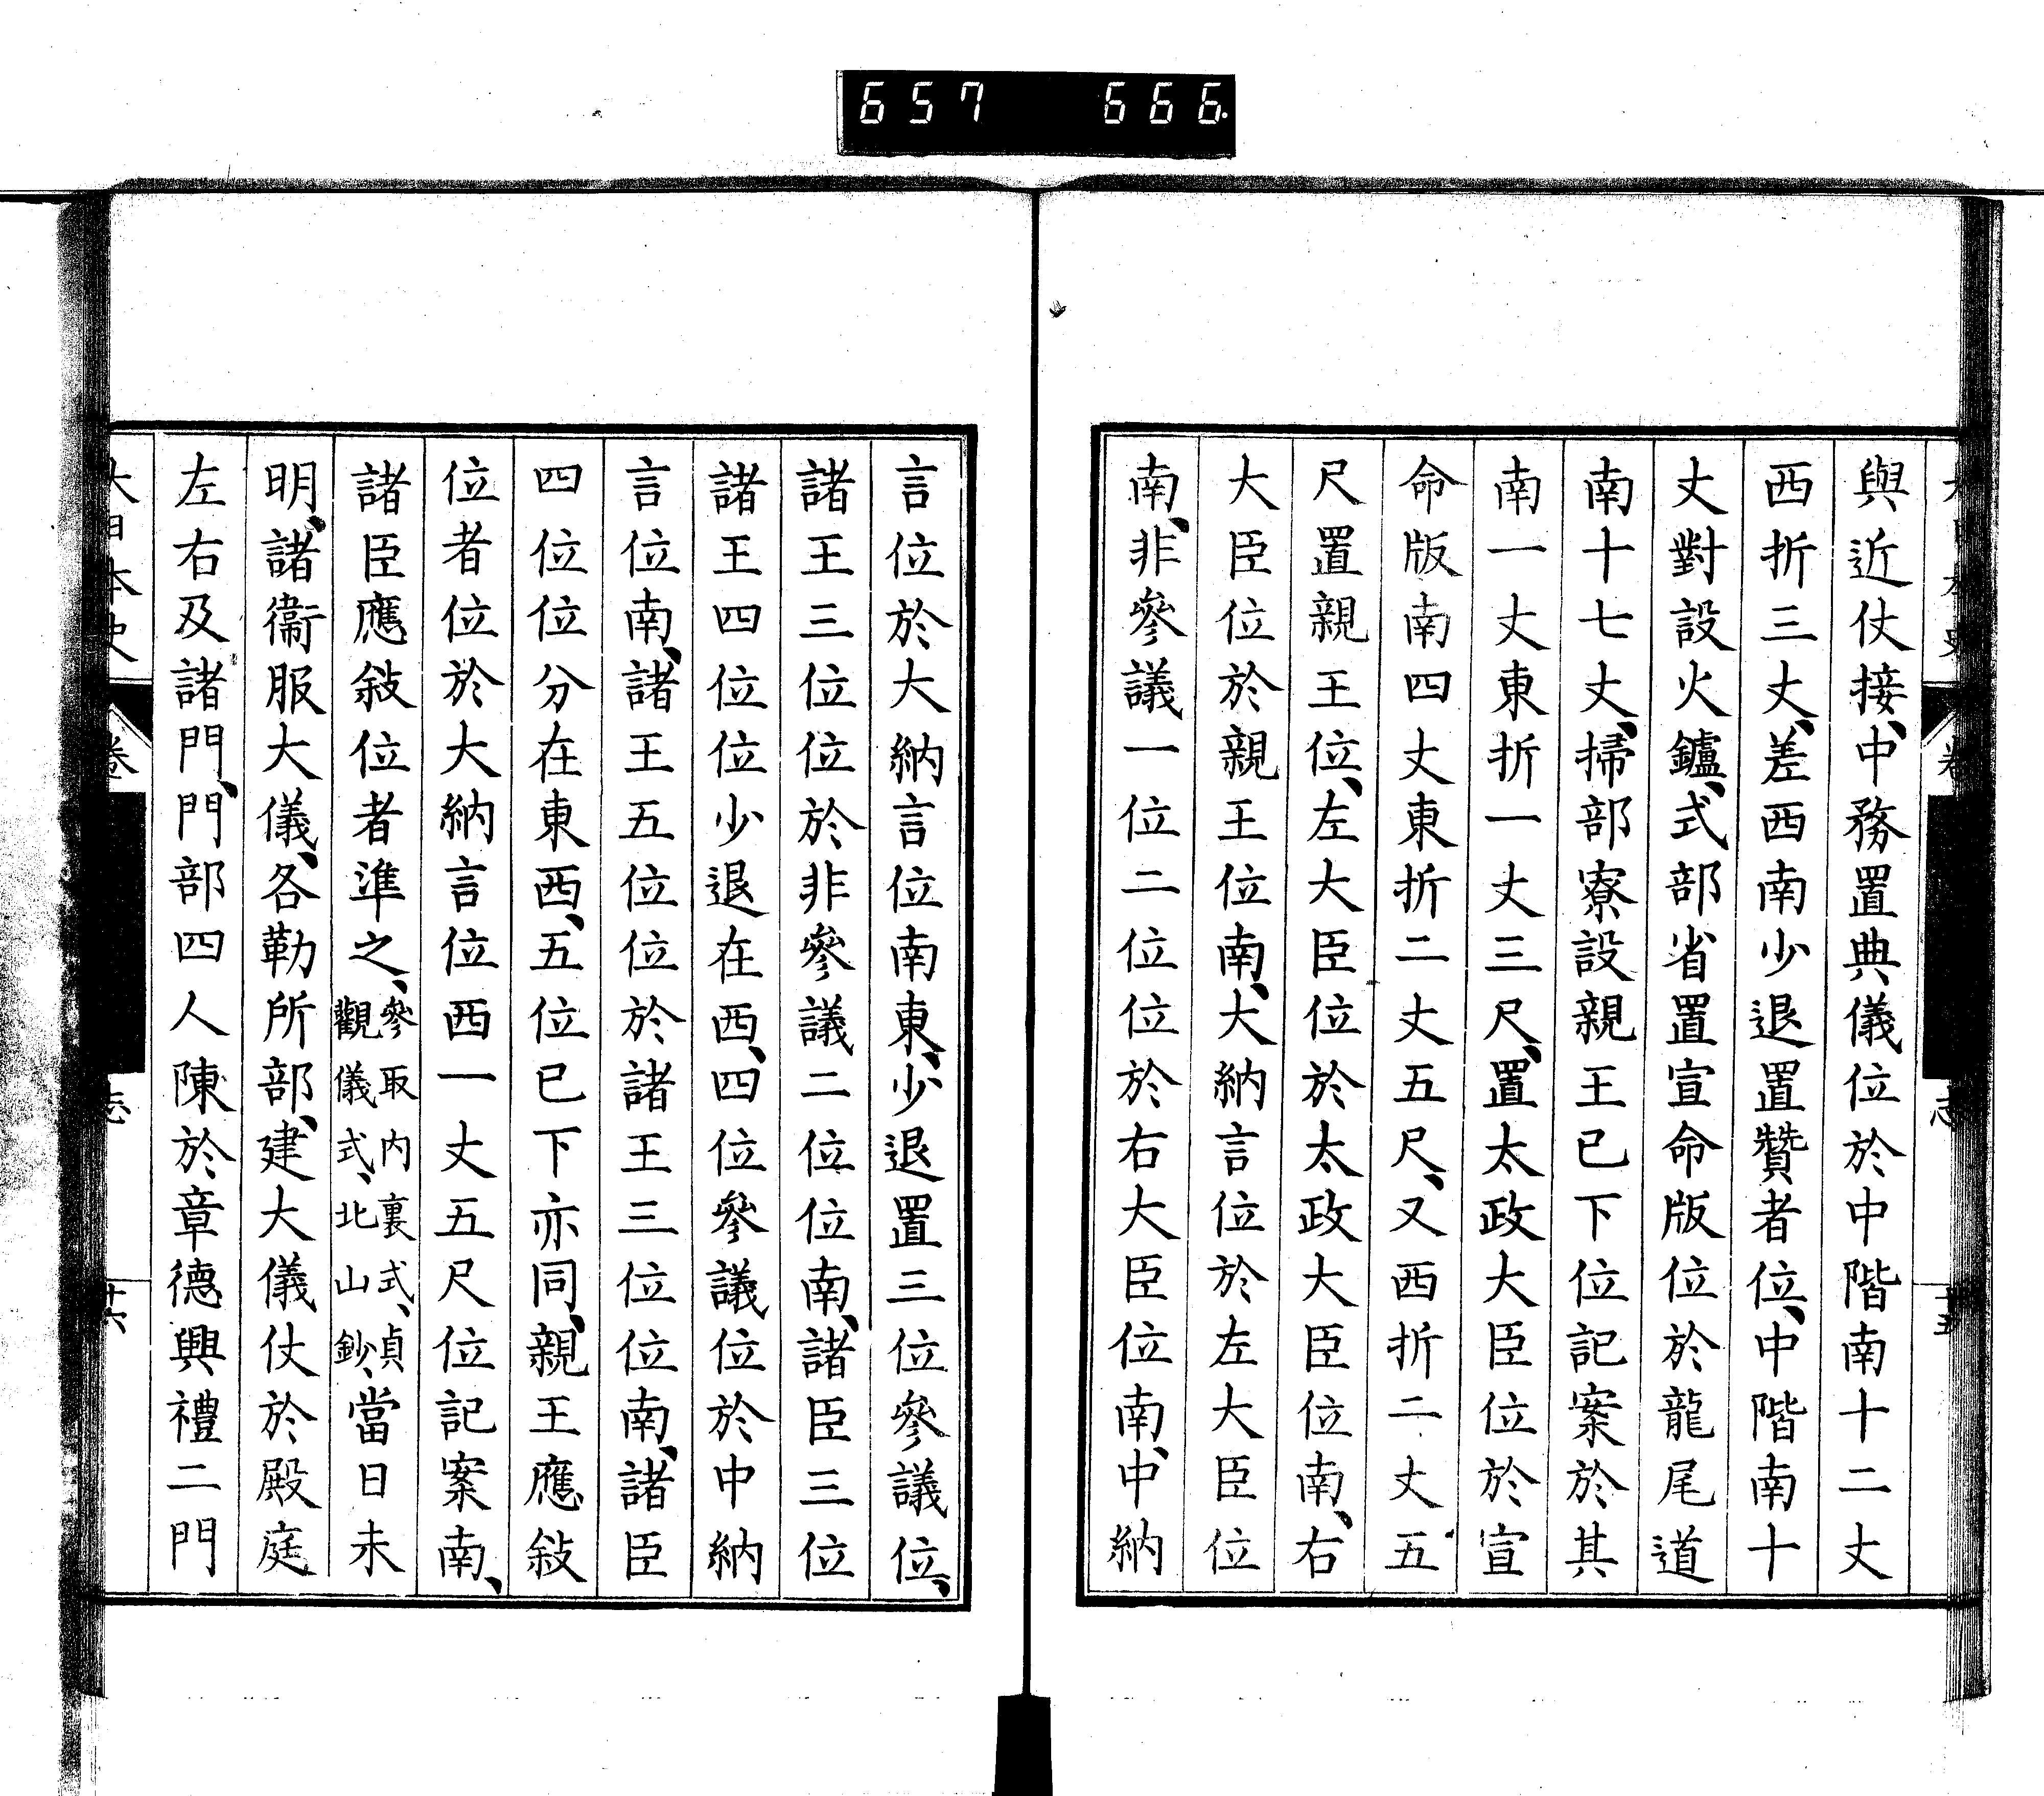 657 666
與近仗接、中務置典儀位於中階南十二丈
西折三丈、差西南少退置贊者位、中階南十
丈對設火鑪、式部省置宣命版位於龍尾道
南十七丈、掃部寮設親王已下位記案於其
南一丈東折一丈三尺、置太政大臣位於宣
命版南四丈東折二丈五尺、又西折二丈五
尺置親王位、左大臣位於太政大臣位南、右
大臣位於親王位南、大納言位於左大臣位
南、非參議一位二位位於右大臣位南、中納
言位於大納言位南東、少退置三位參議位、
諸王三位位於非參議二位位南、諸臣三位
諸王四位位少退在西、四位參議位於中納
言位南、諸王五位位於諸王三位位南、諸臣
四位位分在東西、五位已下亦同、親王應敍
位者位於大納言位西一丈五尺位記案南、
諸臣應敍位者準之、參取內裏式、貞觀儀式、北山鈔、當日未
明、諸衞服大儀、各勒所部、建大儀仗於殿庭
左右及諸門、門部四人陳於章德興禮二門
大日本史 卷 志 十六